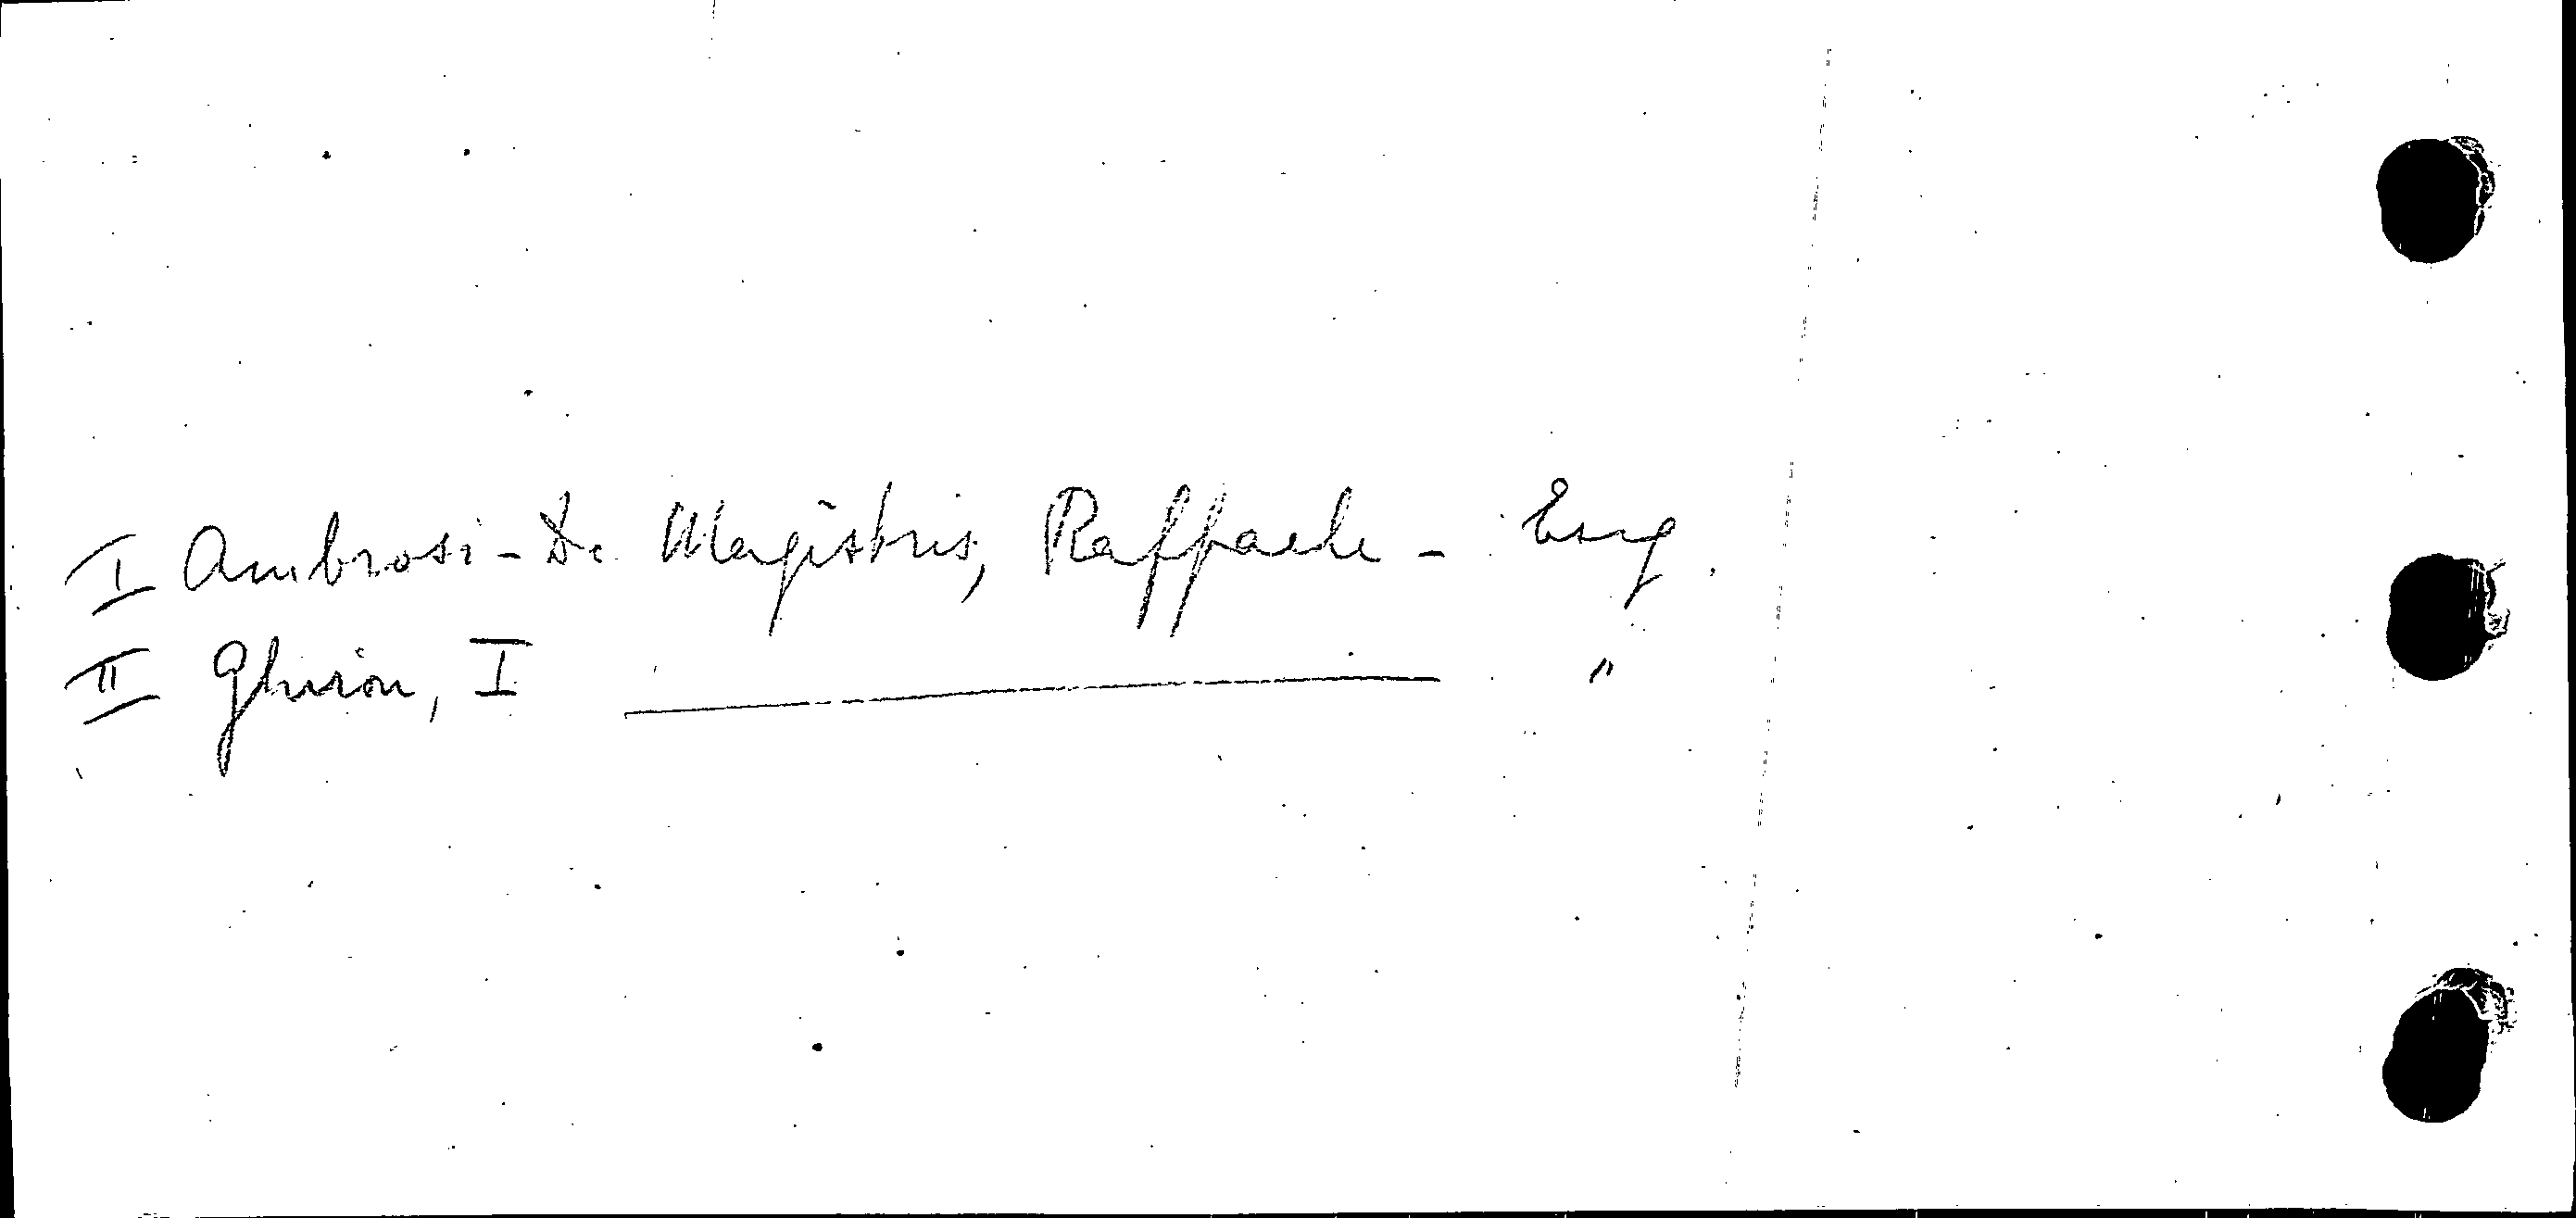 I Ambrosi-De Magistris, Raffaele - Esq.
II Ghiron, I ——— "